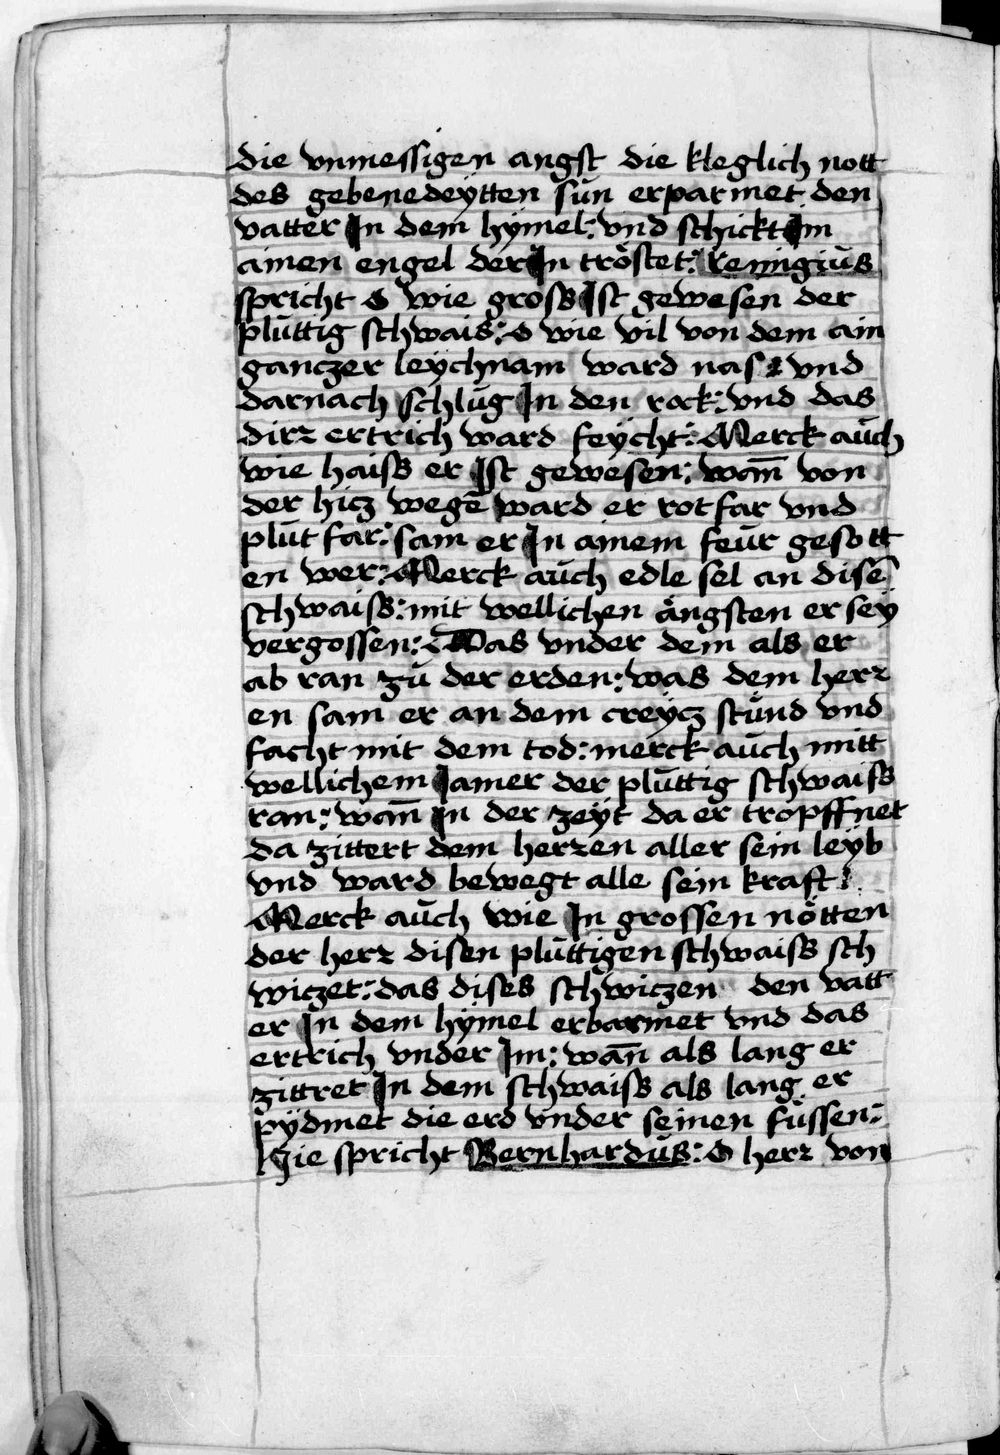 die vnmessigen angst die kleglich nott
des gebenedeÿtten sün erparmet den
vatter In dem hÿmel: vnd schickt Im
ainen engel der In tröstet: Remigiüs
spricht O wie gross Ist gewesen der
plüttig schwais: O wie vil von dem ain
ganczer leÿchnam ward nass vnd
darnach schlüg In den rock: vnd das
dirz ertrich ward feÿcht: Merck aüch
wie haiss er Ist gewesen: wan̄ von
der hicz wegē ward er rotfar vnd
plütfar: sam er In ainem feür gesott
en wer: Merck aüch edle sel an disē
schwaiss: mit wellichen ängsten er seÿ
vergossen: Was vnder dem als er
ab ran zü der erden: was dem herz
en sam er an dem creÿcz stünd vnd
facht mit dem tod: merck aüch mitt
wellichem Iamer der plüttig schwaiss
ran: wan̄ In der zeÿt da er tropffnet
da zittert dem herzen aller sein leÿb
vnd ward bewegt alle sein kraft:
Merck aüch wie In grossen nötten
der herz disen plüttigen schwaiss sch
wiczet: das dises schwiczen den vatt
er In dem hÿmel erbarmet vnd das
ertrich vnder Im: wan̄ als lang er
zittret In dem schwaiss als lang er
pÿdmet die erd vnder seinen füssen:
Hie spricht Bernhardüs: O herz von